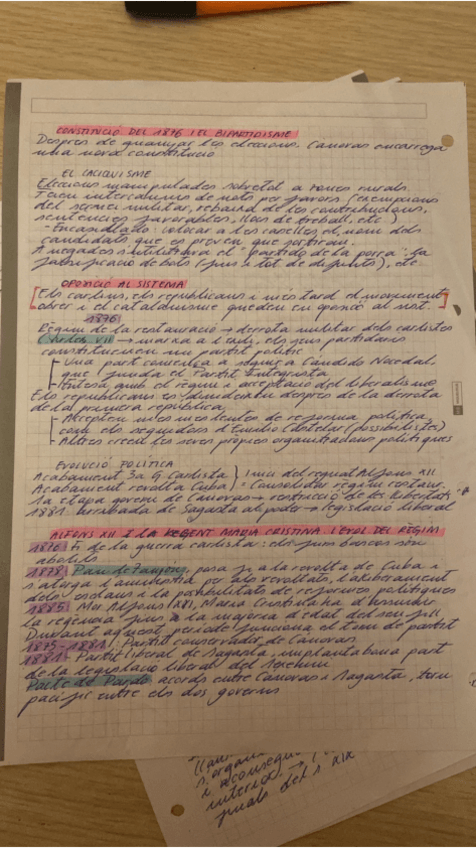 CONSTITUCIÓ DEL 1876 I EL BIPARTIDISME
Després de guanyar les eleccions, Cánovas encarrega
una nova constitució
EL CACIQUISME
Eleccions manipulades sobretot a zones rurals.
Feien intercanvis de vots per favors (exempcions
del servei militar, rebaixa de les contribucions,
sentències favorables, llocs de treball, etc.)
- Encasillado: colocar a les caselles el nom dels
candidats que es preveu que sortiran.
A vegades s'utilitzava el "partido de la porra": la
falsificació de vots (fins i tot de difunts), etc.
OPOSICIÓ AL SISTEMA
Els carlins, els republicans i més tard el moviment
obrer i el catalanisme queden en oposició al sist.
1876
Règim de la restauració → derrota militar dels carlistes
Carles VII → marxa a l'exili, els seus partidaris
constitueixen un partit polític
Una part comença a seguir a Cándido Nocedal,
que funda el Partit Integrista
Entesa amb el règim i acceptació del liberalisme
Els republicans es divideixen després de la derrota
de la primera república
Accepten uns mecanismes de reforma política,
com els seguidors d'Emilio Castelar (possibilistes)
Altres creen les seves pròpies organitzacions polítiques
EVOLUCIÓ POLÍTICA
Acabament 3a G Carlista } Inici del regnat Alfons XII
Acabament revolta Cuba } = Consolidar règim restaur.
1a etapa govern de Cánovas → restricció de les llibertats
1881 arribada de Sagasta al poder → legislació liberal
ALFONS XII I LA REGENT MARIA CRISTINA L'EVOL DEL RÈGIM
1876: Fi de la guerra carlista: els furs bascos són
abolits
1878: Pau de Zanjón, posa fi a la revolta de Cuba i
s'atorga l'amnistia per als revoltats, l'alliberament
dels esclaus i la possibilitat de reformes polítiques
1885: Mor Alfons XII, Maria Cristina ha d'assumir
la regència fins a la majoria d'edat del seu fill.
Durant aquest període funciona el torn de partit
1875-1881: Partit conservador de Cánovas
1881: Partit liberal de Sagasta, implantava part
de la legislació liberal del Sexenni
Pacte de Pardo: acords entre Cánovas i Sagasta, torn
pacífic entre els dos governs
s'organ
i aconsegu
interio →
finals del s XIX